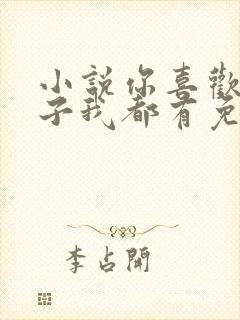 小說你喜歡
子我都有免
李占開